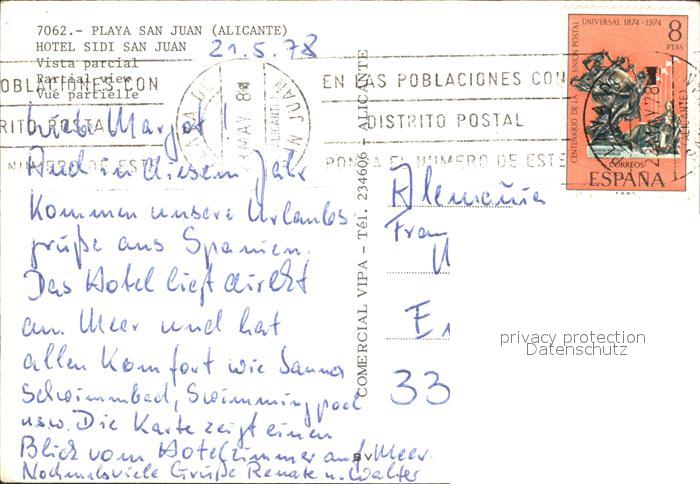 7062.- PLAYA SAN JUAN (ALICANTE)
HOTEL SIDI SAN JUAN
21.5.78
Vista parcial
Partial view
Vue partielle
Liebe Margot!
Auch in diesem Jahr
kommen unsere Urlaubs-
grüße aus Spanien.
Das Hotel liegt direkt
am Meer und hat
allen Komfort wie Sauna
Schwimmbad, Swimmingpool
usw. Die Karte zeigt einen
Blick vom Hotelzimmer auf Meer.
Nochmals viele Grüße Renate u. Walter
COMERCIAL VIPA - Tél. 234606 - ALICANTE
EN LAS POBLACIONES CON
DISTRITO POSTAL
PONGA EL NUMERO DE ESTE
OBLACIONES CON
RITO POSTA
NUMERO DE ESTE
CENTENARIO DE LA UNION POSTAL UNIVERSAL 1874-1974
8
PTAS
CORREOS
ESPAÑA
Alemania
Frau
33
privacy protection
Datenschutz